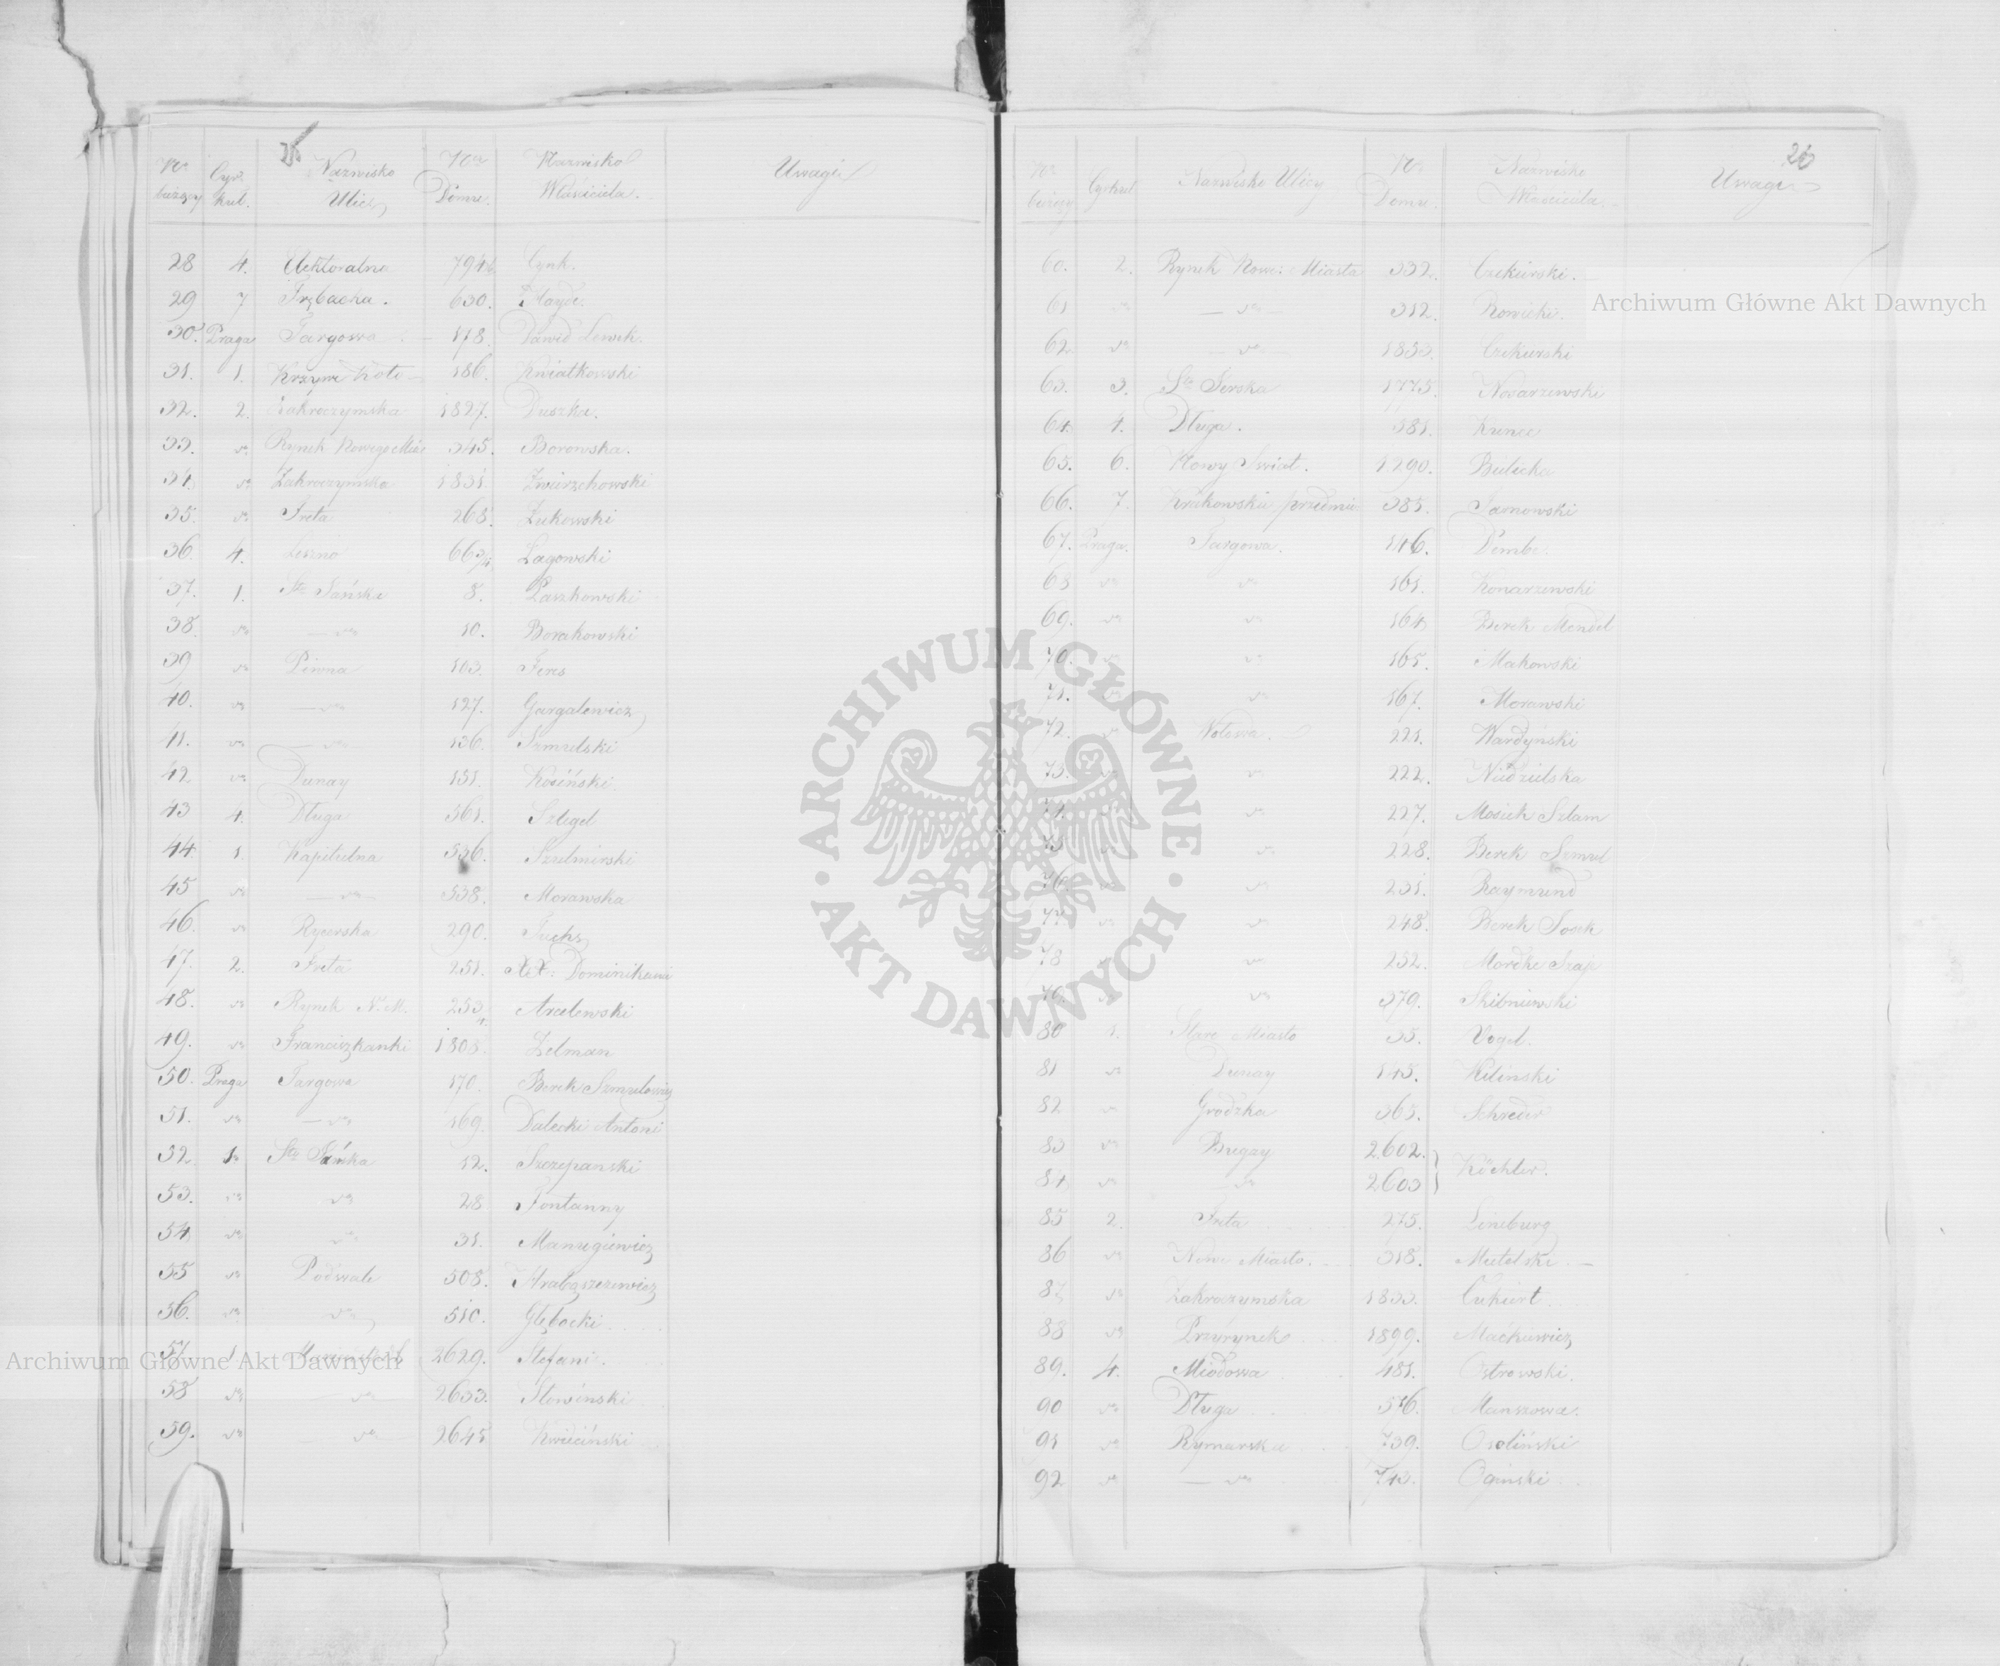 25
No bieżący Cyrkuł. Nazwisko Ulicy No Domu. Nazwisko Właściciela. Uwagi
28 4. Elektoralna 794b. Cynk.
29 7 Trębacka. 630. Hayde.
30. Praga Targowa 178. Dawid Lewek.
31. 1. Krzywe Koło 186. Kwiatkowski
32. 2. Zakroczymska 1827. Duszka.
33. do Rynek Nowego Mias 345. Borowska.
34. do Zakroczymska 1831. Zwierzchowski
35. do Freta 268. Żukowski
36 4. Leszno 663/4. Łagowski
37. 1. Sto Jańska 8. Laszkowski
38. do — do 10. Borakowski
39 do Piwna 103. Feres
40. do — do 127. Gargalewicz
41. do — do 136. Szmulski
42 do Dunay 151. Kosiński.
43 4. Długa 561. Szlegel
44. 1. Kapitulna 536. Szulmirski
45 do — do — 538. Morawska
46. do Rycerska 290. Fuchs
47. 2. Freta 251. XX: Dominikanie
48. do Rynek N. M. 253 Arcelewski
49. do Franciszkanki 1808. Zelman
50. Praga Targowa 170. Berek Szmulowicz
51. do — do 169. Dalecki Antoni
52 1. Sto Jańska 12. Szczepanski
53. do do 28 Fontanny
54 do do 31. Manugiewicz
55 do Podwale 508. Hrabąszczewicz
56. do do 510. Głębocki
57. 1 2629. Stefani.
58 do — do 2633. Słowinski
59. do — do 2645 Kwieciński
26
No bieżący Cyrkuł Nazwisko Ulicy No Domu. Nazwisko Właściciela. Uwagi
60. 2. Rynek Nowe: Miasta 332. Czekierski.
61 do — do — 312. Rowicki.
62. do — do 1833. Czekierski
63. 3. Sto Jerska 1775. Nosarzewski
64. 4. Długa. 581. Kunce
65. 6. Nowy Swiat. 1290. Bielecka
66. 7. Krakowskie przedmie 385. Tarnowski
67. Praga. Targowa. 146. Dembe.
68 do do 161. Konarzewski
69. do do 164. Berek Mendel
70. do do 165. Makowski
71. do do 167. Morawski
72. do Wołowa. 221. Wardyński
73. do do 222. Niedzielska
74. do 227. Mosiek Szlam
75 do do 228. Berek Szmul
76. do 231. Raymund
77. do do 248. Berek Josek
78 do 252. Mordke Szaje
79. do 379. Skibniewski
80 1. Stare Miasto 35. Vogel.
81 do Dunay 145. Kiliński
82 do Grodzka 365. Schreder
83 do Bugay 2602. } Köchler.
84 do — do 2603
85 2. Freta 275. Lineburg
86 do Nowe Miasto. 318. Mietelski —
87. do Zakroczymska 1833. Cukiert
88 do Przyrynek 1899. Maćkiewicz
89. 4. Miodowa 481. Ostrowski.
90 do Długa 576. Munszowa.
91 do Rymarska 739. Osoliński
92. do — do 743. Oginski
ARCHIWUM GŁÓWNE · AKT DAWNYCH ·
Archiwum Główne Akt Dawnych
Archiwum Główne Akt Dawnych